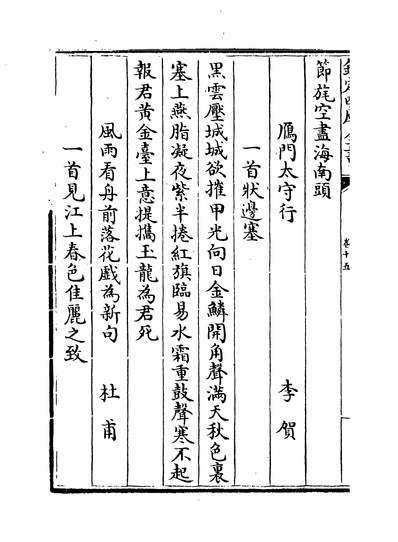 節旄空盡海南頭
鴈門太守行 李賀
一首狀邊塞
黒雲壓城城欲摧甲光向日金鱗開角聲滿天秋色裏
塞上燕脂凝夜紫半捲紅旗臨易水霜重鼓聲寒不起
報君黄金臺上意提攜玉龍為君死
風雨看舟前落花戲為新句 杜甫
一首見江上春色佳麗之致